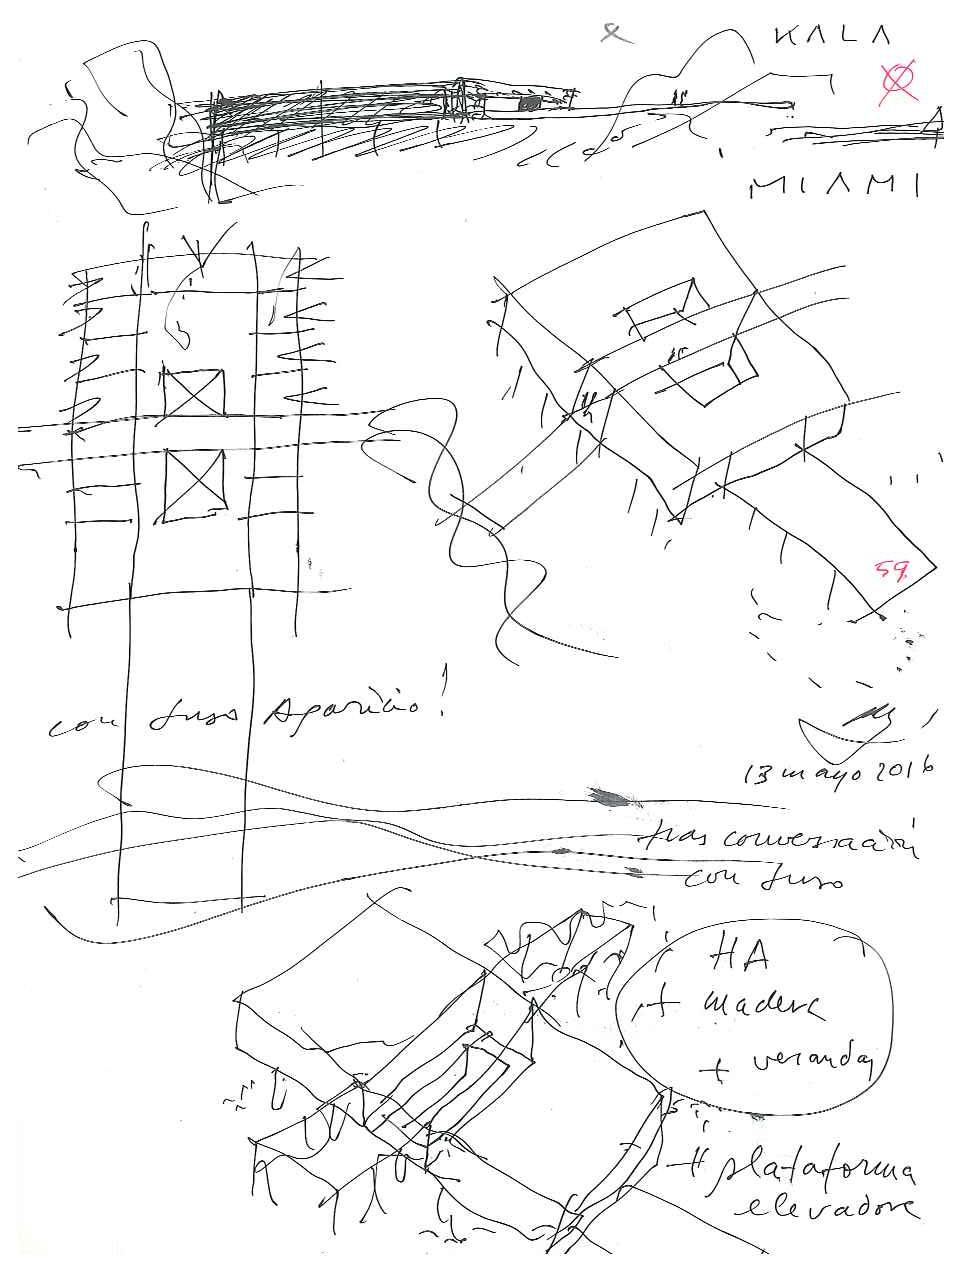 KALA
MIAMI
59
con Juso Aparicio!
13 mayo 2016
tras conversación
con Juso
HA
+ madera
+ veranda
+ plataforma
elevadora